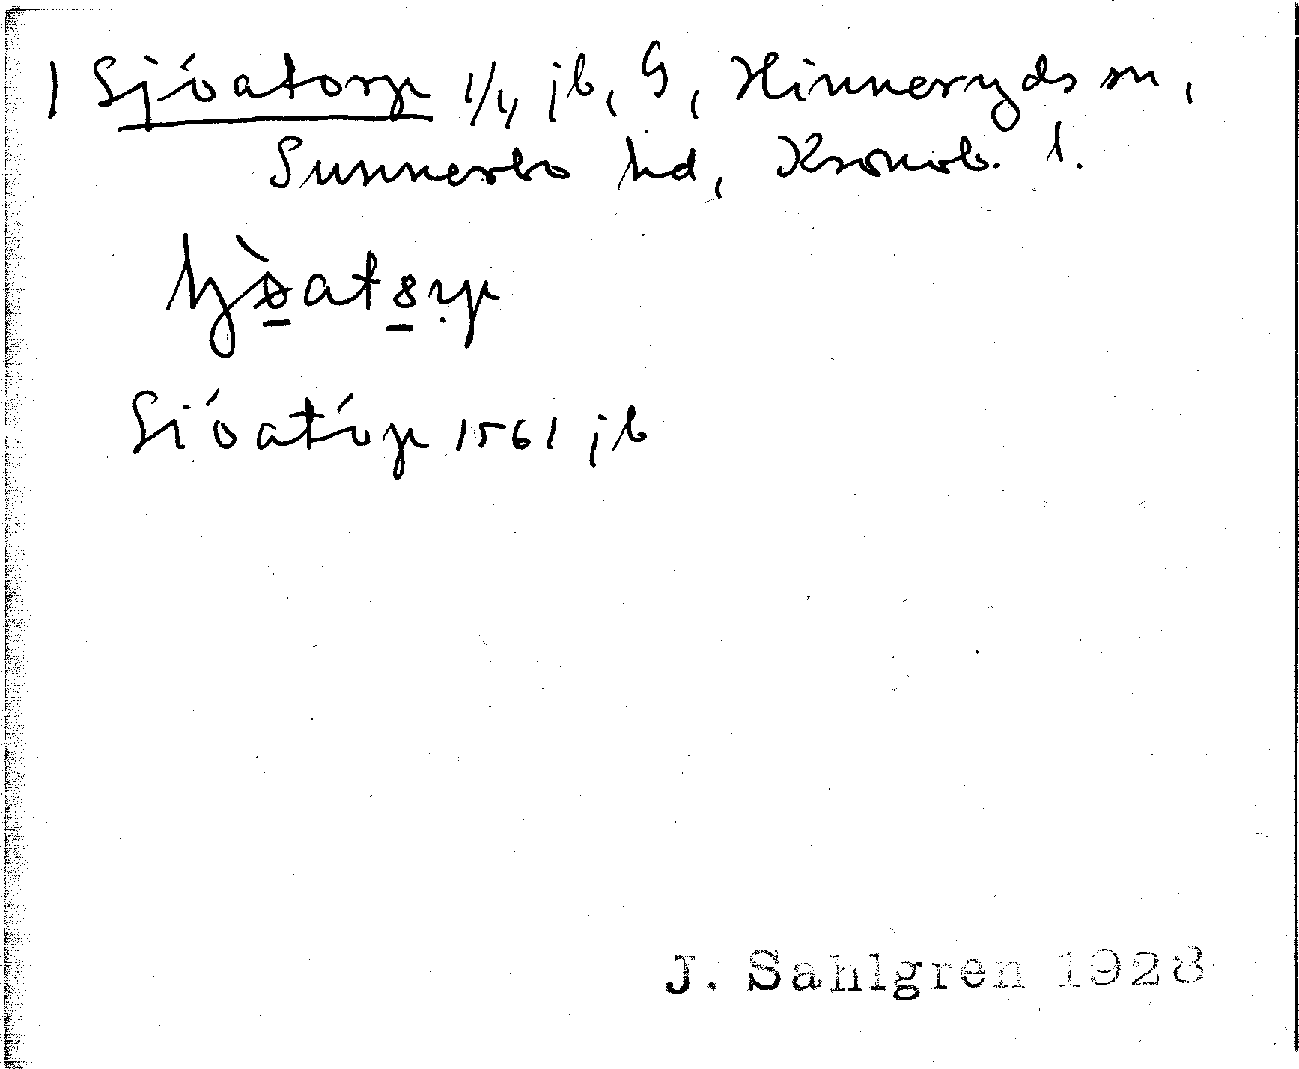 1 Sjöatorp 1/4 jb, G, Hinneryds sn,
Sunnerbo hd, Kronob. l.
Siöatóp 1561 jb
J. Sahlgren 1928